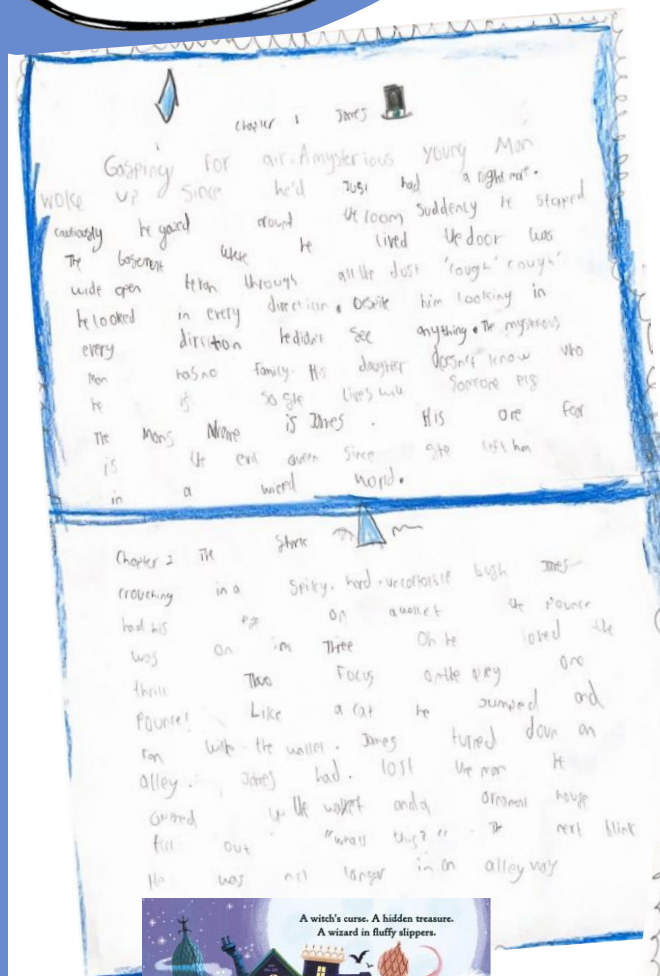 Chapter 1 James
Gasping for air. A mysterious young Man
woke up since he'd Just had a nightmare.
cautiously he gazed around the room suddenly he stopped
The basement were he lived the door was
wide open he ran through all the dust 'cough' cough'
he looked in every direction. Despite him looking in
every direction he didnt see anything. The mysterious
Man has no family. His daughter doesn't know who
he is so she lives with someone els
The Mans Name is James. His one fear
is the evil queen since she left him
in a wierd world.
Chapter 2 The
crouching in a spiky. hard. uncomfortable bush James
had his eye on a wallet the Pounce
was on im Three Oh he loved the
thrill Two Focus on the prey One
Pounce! Like a cat he Jumped and
ran with the wallet. James turned down an
alley. James had. lost the man he
opened up the wallet and a house
fell out "whats this?". The next blink
He was not longer in an alley way
A witch's curse. A hidden treasure.
A wizard in fluffy slippers.